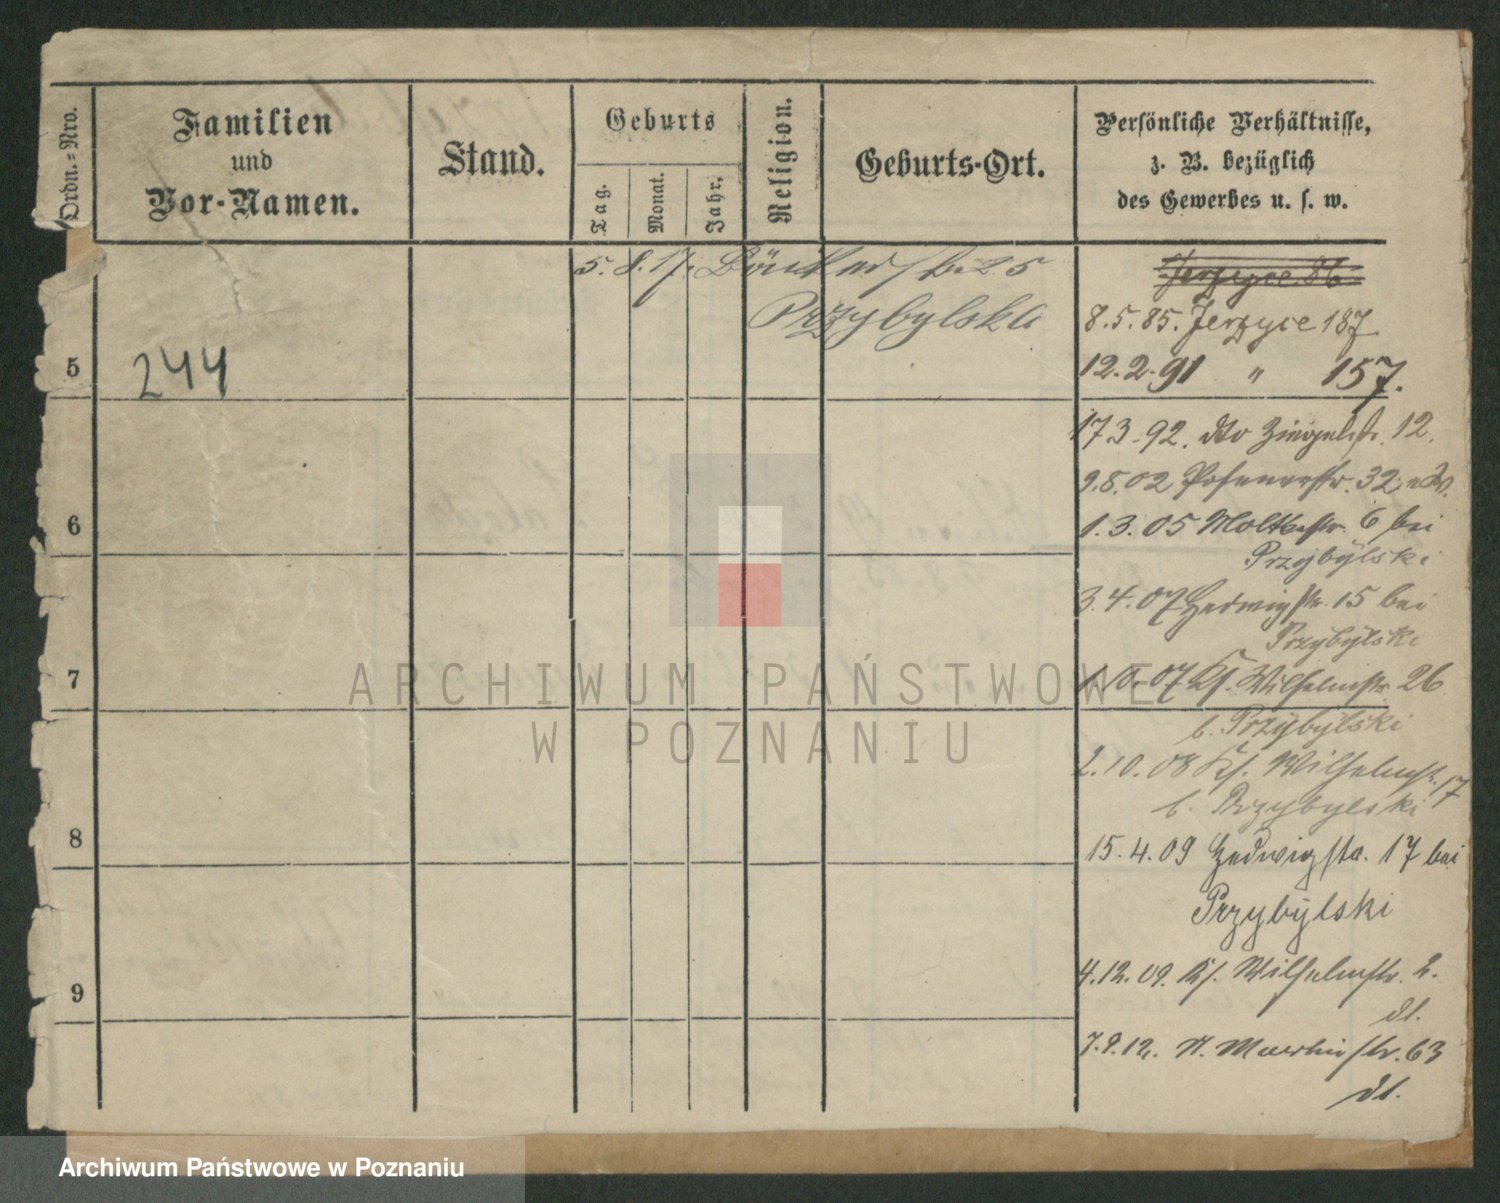 Ordn.=Nro.
Familien
und
Vor-Namen.
Stand.
Geburts
Tag.
Monat.
Jahr.
Religion.
Geburts-Ort.
Persönliche Verhältnisse,
z. B. bezüglich
des Gewerbes u. s. w.
5. 8. 17. bei 5
Przybylska
Jerzyce 86
8.5.85. Jerzyce 187
5
244
12.2.91 " 157.
17.3.92. dto Ziegelstr. 12.
9.8.02 Posenerstr. 32
6
1.3.05 Moltkestr. 6 bei
Przybylski
3.4.07 Hedwigstr. 15 bei
Przybylski
7
1.10.07 Ks. Wilhelmstr. 26
b. Przybylski
2.10.08 Ks. Wilhelmstr. 17
b. Przybylski
8
15.4.09 Hedwigstr. 17 bei
Przybylski
9
4.12.09. Ks. Wilhelmstr. 2.
dt.
7.9.12. N. Martinstr. 63
dt.
ARCHIWUM PAŃSTWOWE
W POZNANIU
Archiwum Państwowe w Poznaniu